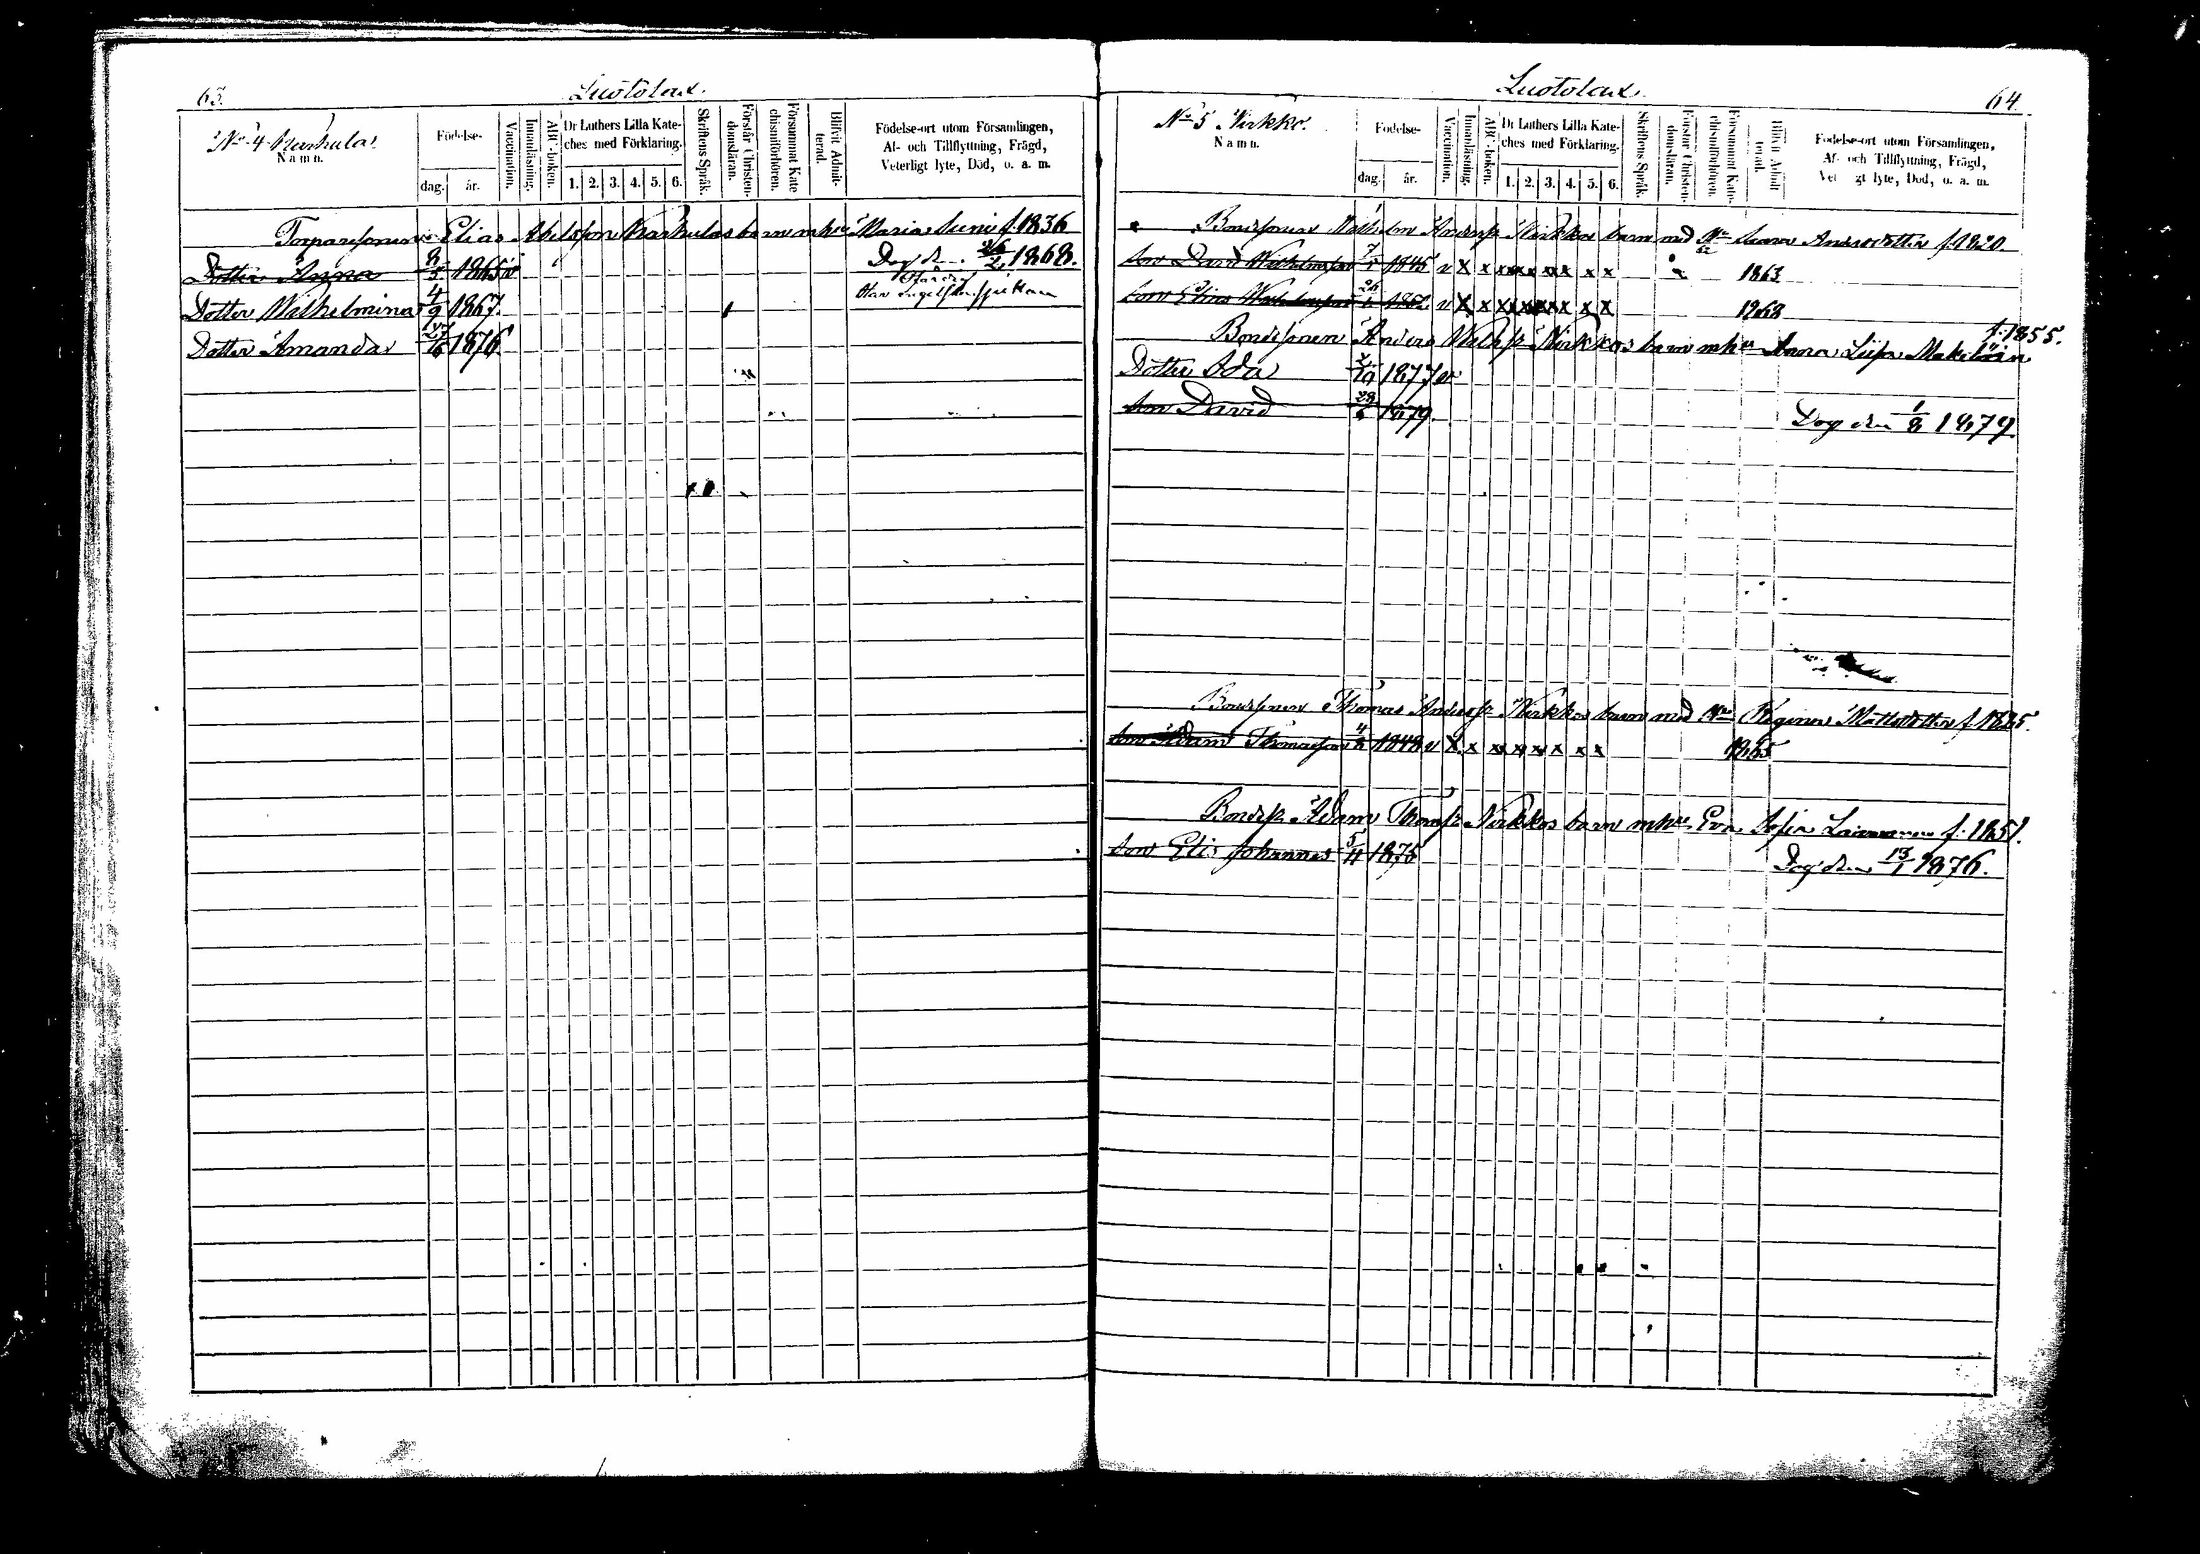 63.
Luotolax.
No 4 Karhula.
Namn.
Födelse-
dag. år.
Vaccination.
Innanläsning.
ABC-boken.
Dr Luthers Lilla Kate-
ches med Förklaring.
1. 2. 3. 4. 5. 6.
Skriftens Språk.
Förstår Christen-
domsläran.
Försummat Kate-
chismiförhören.
Blifvit Admit-
terad.
Födelse-ort utom Församlingen,
Af- och Tillflyttning, Frägd,
Veterligt lyte, Död, o. a. m.
Torparesonen Elias Abelsson Karhulas barn m hu Maria Suni f. 1836
Dotter Anna 1865 v Dog d. 26/2 1868.
Dotter Wilhelmina 4/9 1867. Har engelska sjukan
Dotter Amanda 27/6 1876
64.
Luotolax.
No 5 Kirkko.
Namn.
Födelse-
dag. år.
Vaccination.
Innanläsning.
ABC-boken.
Dr Luthers Lilla Kate-
ches med Förklaring.
1. 2. 3. 4. 5. 6.
Skriftens Språk.
Förstår Christen-
domsläran.
Försummat Kate-
chismiförhören.
Blifvit Admit-
terad.
Födelse-ort utom Församlingen,
Af- och Tillflyttning, Frägd,
Vet gt lyte, Död, o. a. m.
Bondesonen Anderss Kirkkos barn med Hu Anna Andersdotter f. 1820.
Son David Wilhelmsson 1845 v x x x x x x x x 1863
Son Elias Wilhelmsson 1852 v x x x x x x x x 1868
Bondesonen Anders Wilhss Kirkkos barn m hu Anna Liisa f. 1855.
Dotter Ida 2/10 1877 v
Son David 28/6 1879. Dog den 1/8 1879.
Bondesonen Thomas Anderss Kirkkos barn med Hu Regina Mattsdotter f. 1825.
Son Adam Thomasson 1848 v x x x x x x x x 1865
Bondess Adam Thomass Kirkkos barn m hu Eva Sofia f. 1851.
Son Elis Johannes 5/11 1875 Dog den 13/1 1876.